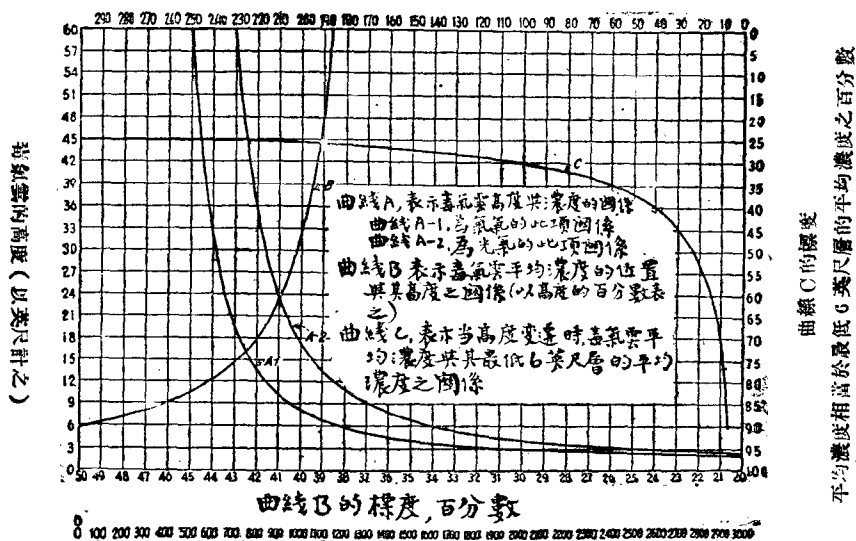 290 280 270 260 250 240 230 220 210 200 190 180 170 160 150 140 130 120 110 100 90 80 70 60 50 40 30 20 10 0
60
57
54
51
48
45
42
39
36
33
30
27
24
21
18
15
12
9
6
3
0
0
5
10
15
20
25
30
35
40
45
50
55
60
65
70
75
80
85
90
95
100
毒氣雲的高度（以英尺計之）
曲線 C 的標度
平均濃度相當於最低 6 英尺層的平均濃度之百分數
C
B
A-2
A1
曲线A,表示毒氣雲高度與濃度的関係
曲线A-1,為氯氣的此項関係
曲线A-2,為光氣的此項関係
曲线B表示毒氣雲平均濃度的位置
與其高度之関係(以高度的百分數表
之)
曲线C,表示当高度变遷時,毒氣雲平
均濃度與其最低6英尺層的平均
濃度之関係
50 49 48 47 46 45 44 43 42 41 40 39 38 37 36 35 34 33 32 31 30 29 28 27 26 25 24 23 22 21 20
曲线B的標度,百分數
0 100 200 300 400 500 600 700 800 900 1000 1100 1200 1300 1400 1500 1600 1700 1800 1900 2000 2100 2200 2300 2400 2500 2600 2700 2800 2900 3000